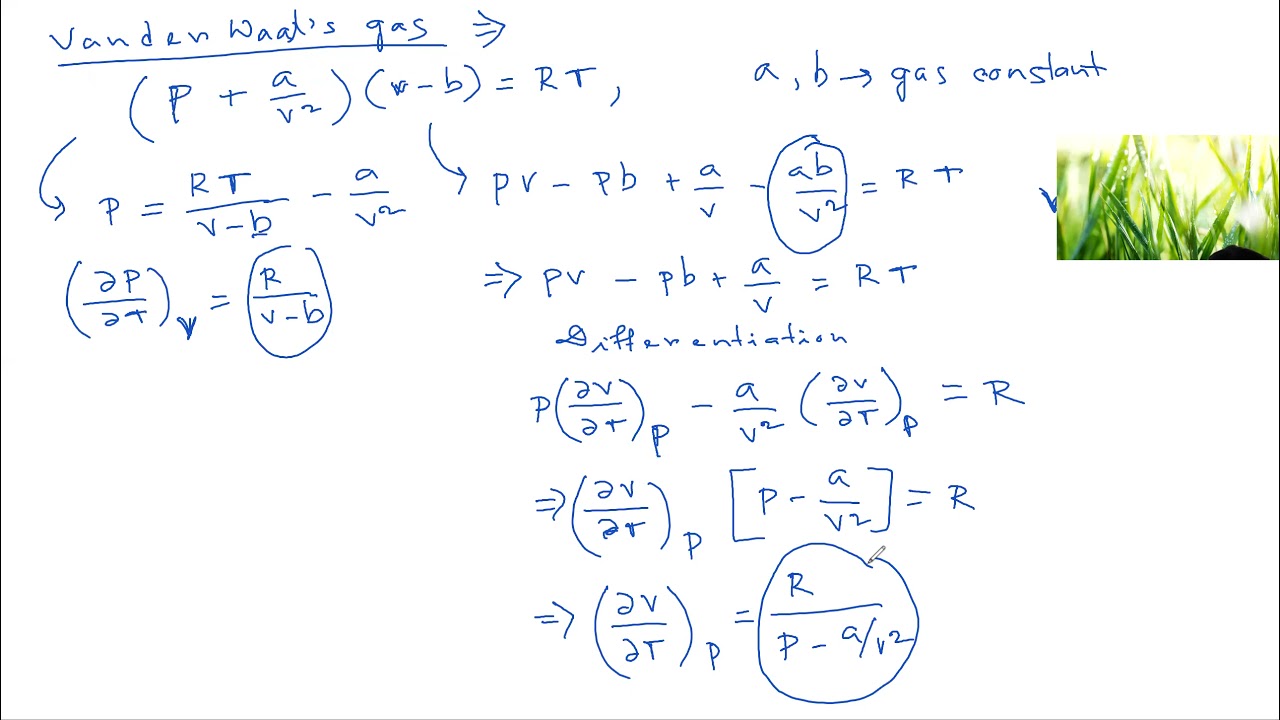 Vander Waal's gas ⇒
(P + a/v²)(v - b) = RT,
a, b → gas constant
P = RT/(v-b) - a/v²
(∂P/∂T)_V = R/(v-b)
PV - Pb + a/v - ab/v² = RT
⇒ PV - Pb + a/v = RT
Differentiation
P(∂V/∂T)_P - a/v² (∂V/∂T)_P = R
⇒ (∂V/∂T)_P [P - a/v²] = R
⇒ (∂V/∂T)_P = R/(P - a/v²)